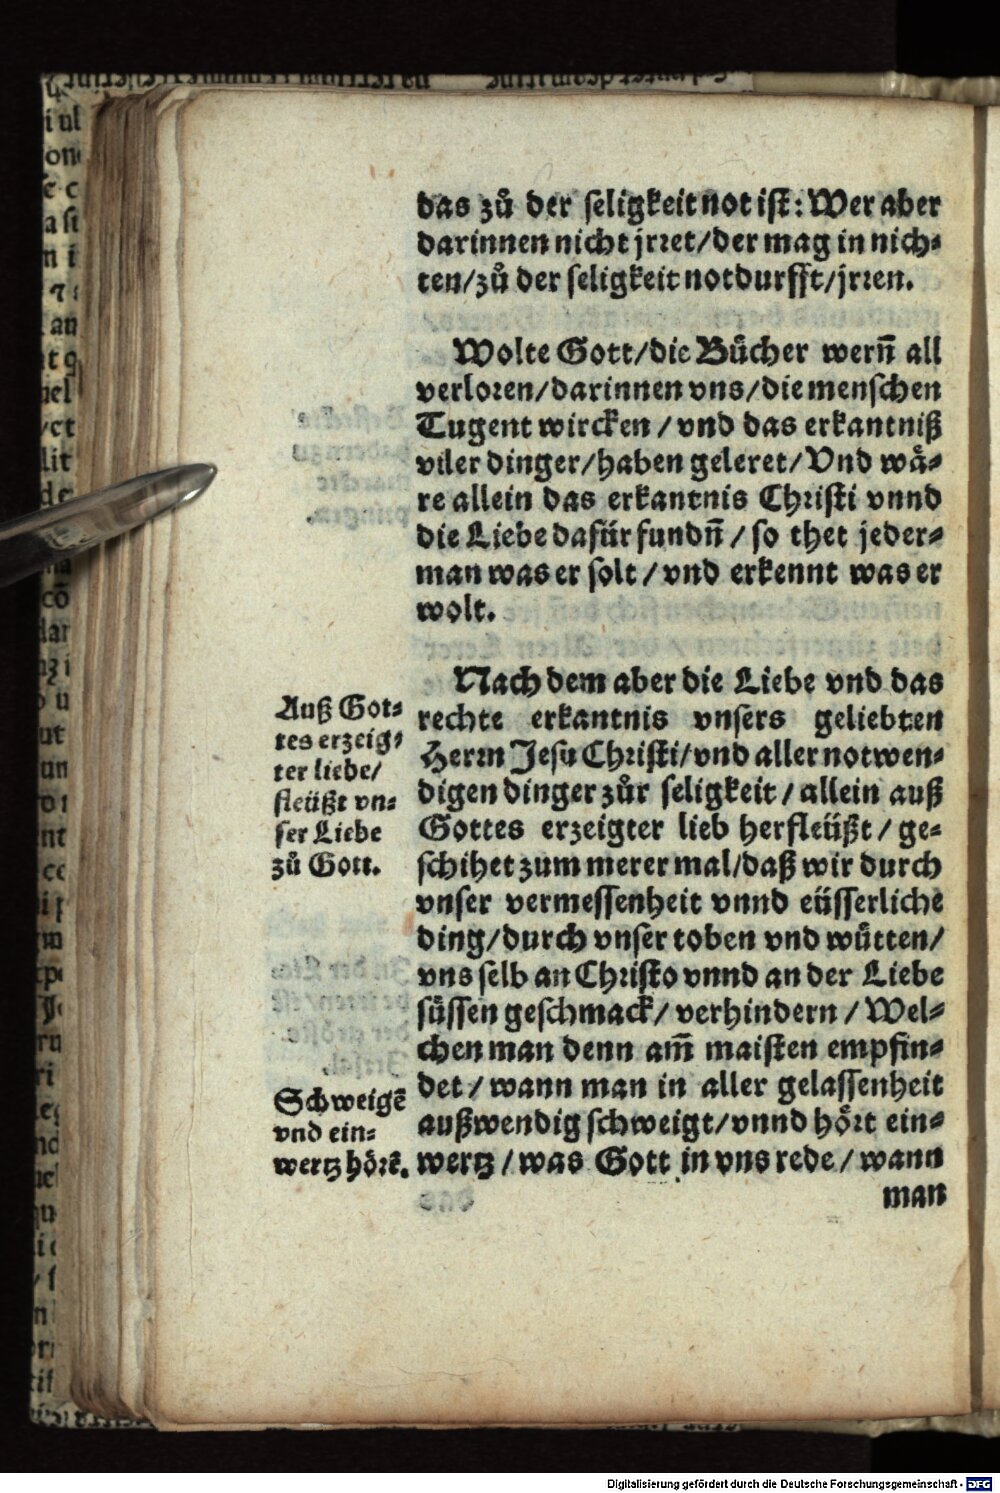 das zů der seligkeit not ist: Wer aber
darinnen nicht jrret/der mag in nich⸗
ten/zů der seligkeit notdurfft/jrren.
Wolte Gott/die Bücher wern̄ all
verloren/darinnen vns/die menschen
Tugent wircken/vnd das erkantniß
viler dinger/haben geleret/Vnd wä⸗
re allein das erkantnis Christi vnnd
die Liebe dafür fundn̄/so thet jeder⸗
man was er solt/vnd erkennt was er
wolt.
Nach dem aber die Liebe vnd das
rechte erkantnis vnsers geliebten
Herrn Jesu Christi/vnd aller notwen⸗
digen dinger zůr seligkeit/allein auß
Gottes erzeigter lieb herfleüßt/ge⸗
schihet zum merer mal/daß wir durch
vnser vermessenheit vnnd eüsserliche
ding/durch vnser toben vnd wütten/
vns selb an Christo vnnd an der Liebe
süssen geschmack/verhindern/Wel⸗
chen man denn am̄ maisten empfin⸗
det/wann man in aller gelassenheit
außwendig schweigt/vnnd hört ein⸗
wertz/was Gott in vns rede/wann
man
Auß Got⸗
tes erzeig⸗
ter liebe/
fleüßt vn⸗
ser Liebe
zů Gott.
Schweigē
vnd ein⸗
wertz hörē.
Digitalisierung gefördert durch die Deutsche Forschungsgemeinschaft - DFG